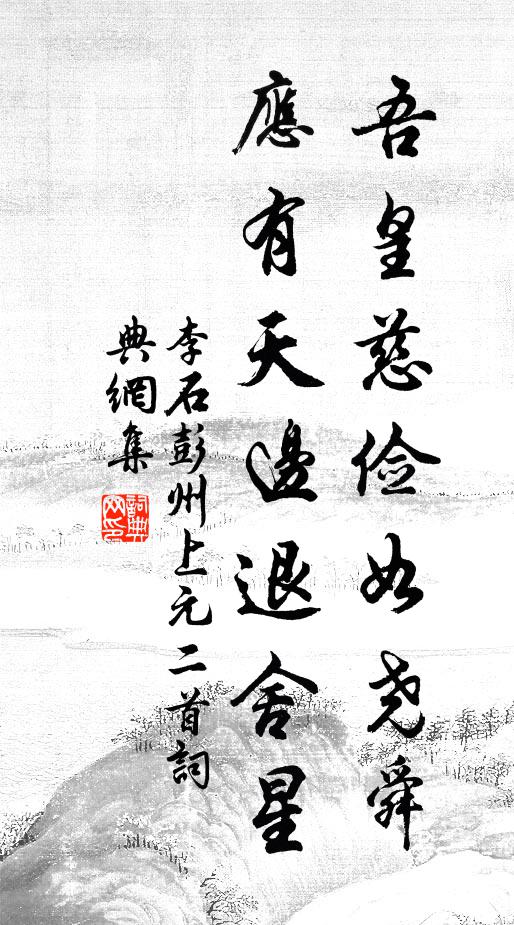 吾皇慈俭如尧舜
應有天邊退舍星
李石彭州上元二首詞
典網集
詞典網印